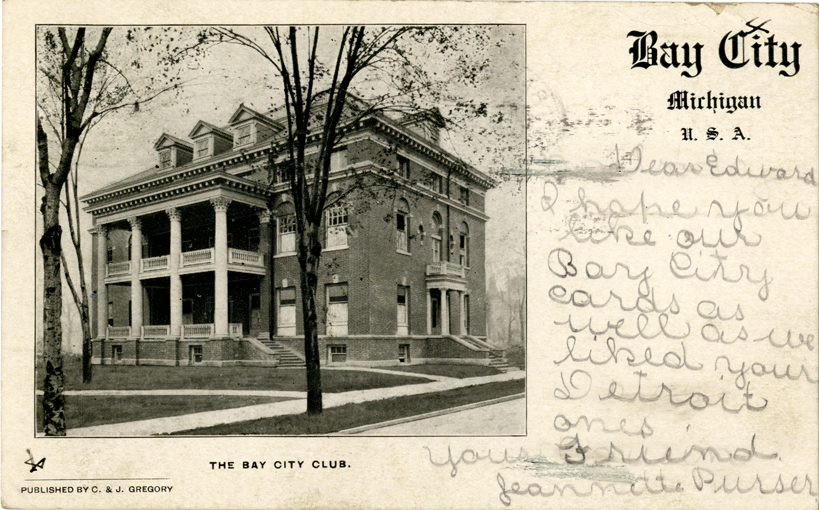 Bay City
Michigan
U. S. A.
Dear Edward
I hope you
like our
Bay City
cards as
well as we
liked your
Detroit
ones
Your Friend.
Jeannette Purser
THE BAY CITY CLUB.
PUBLISHED BY C. & J. GREGORY